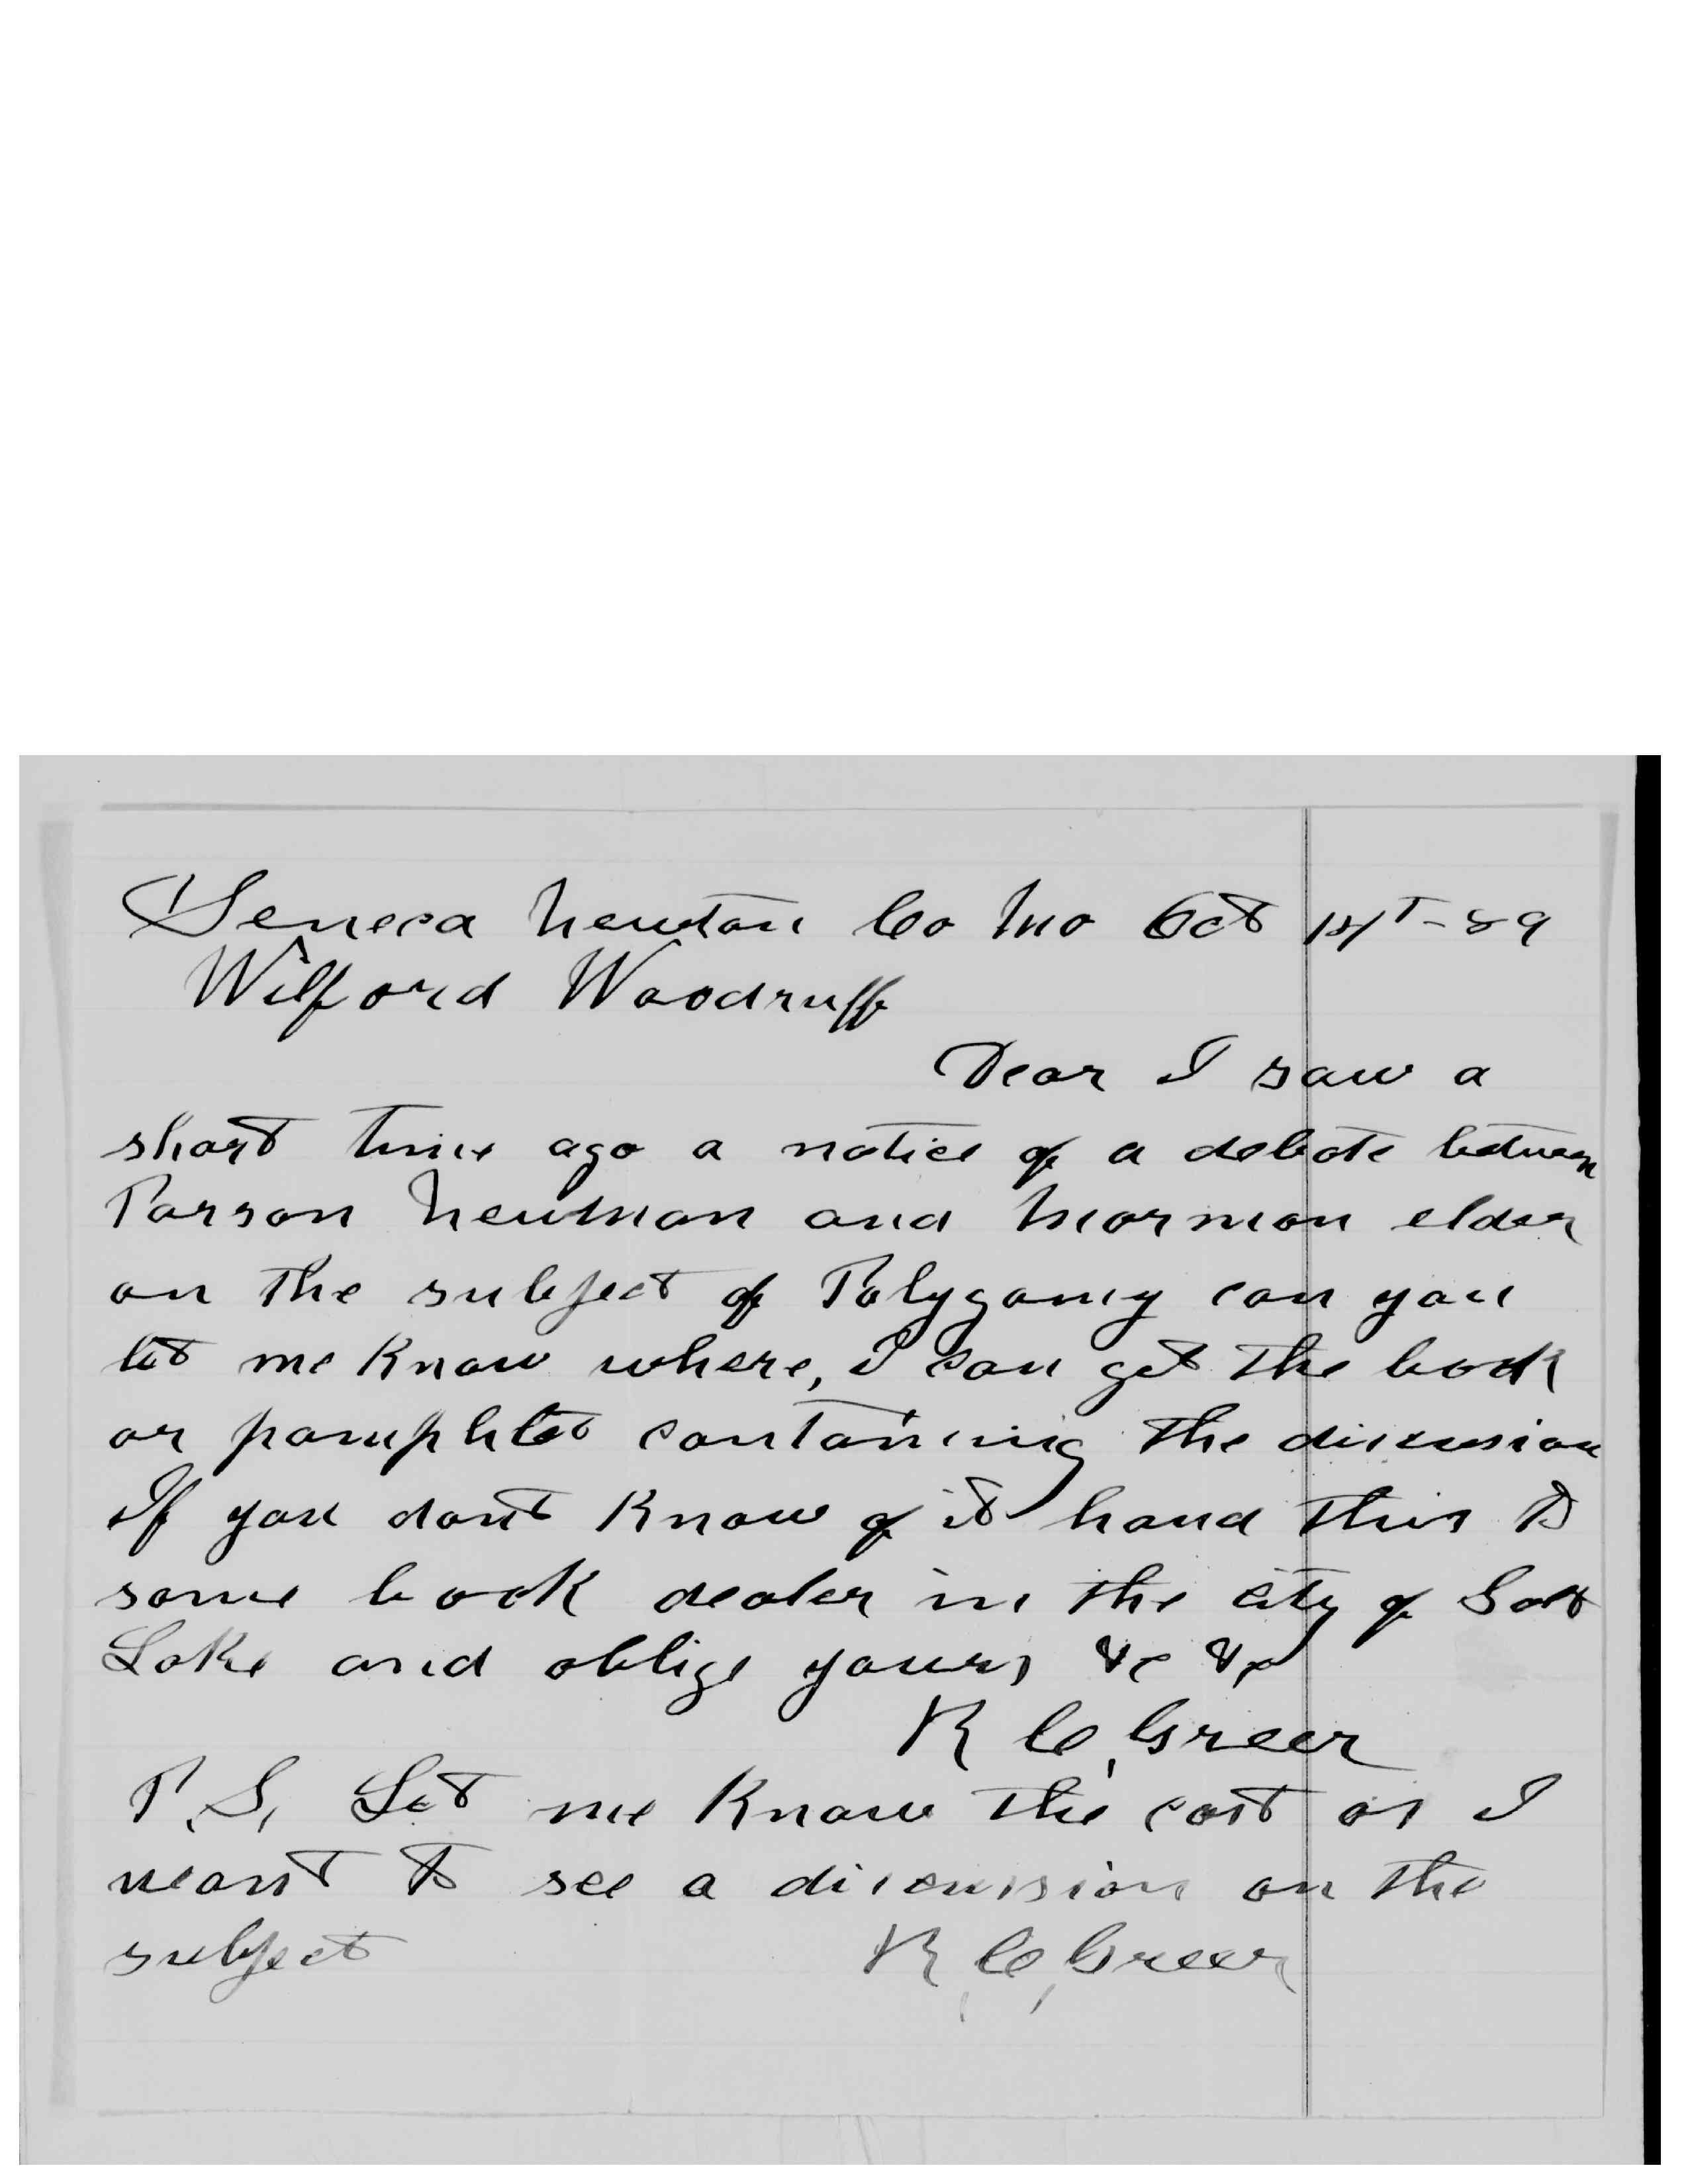 Seneca Newton Co Mo Oct 14th - 89
Wilford Woodruff
Dear I saw a
short time ago a notice of a debate between
Parson Newman and Mormon elder
on the subject of Polygamy can you
let me Know where, I can get the book
or pamphlet containing the discussion
If you dont Know of it hand this to
some book dealer in the city of Salt
Lake and oblige yours &c &c
R C, Greer
P.S, Let me Know the cost as I
want to see a discussion on the
subject R, C, Greer